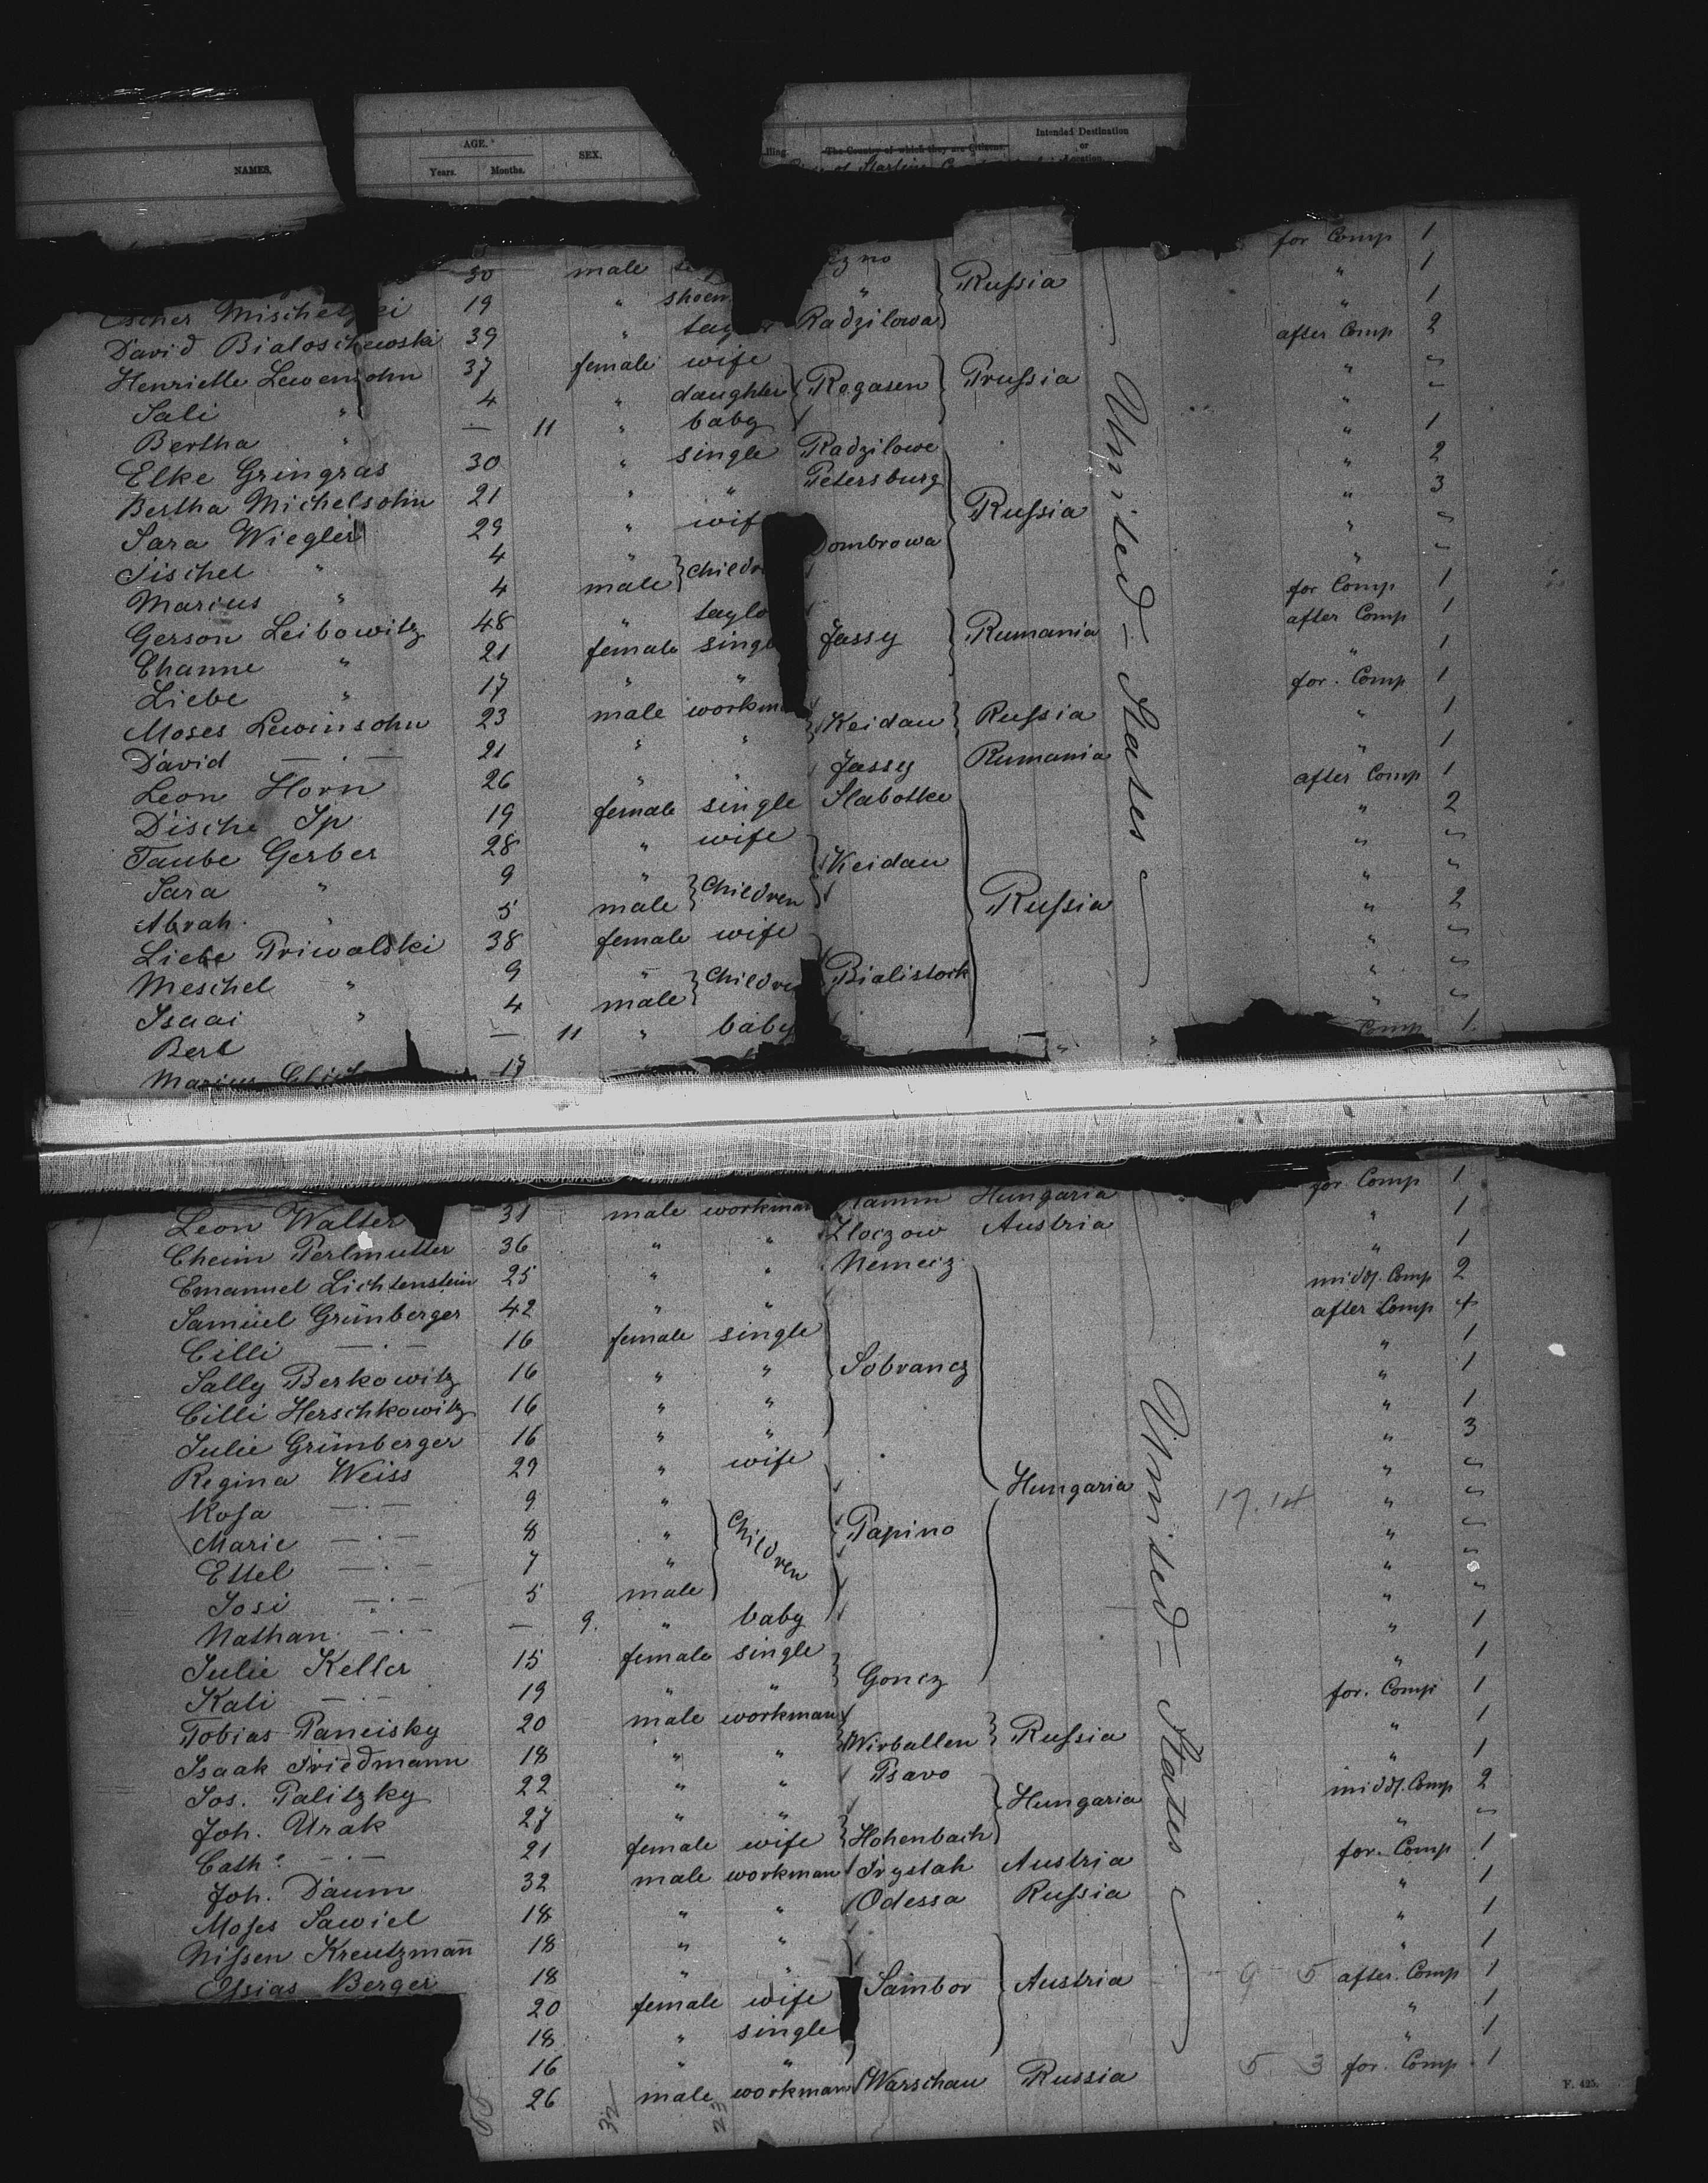 NAMES. AGE. Years. Months. SEX. The Country of which they are Citizens Intended Destination or Location
30 male for Comp 1
Escher 19 " " Russia " 1
David Bialoschewski 39 " Radzilowa " 1
Henriette Lewensohn 37 female wife after Comp 2
Sali " 4 " daughter Rogasen Prussia " "
Bertha " — 11 " baby " "
Elke Gringras 30 " single Radzilowe " 1
Bertha Michelsohn 21 " " Petersburg " 2
Sara Wiegler 29 " Russia " 3
Fischel " 4 " Dombrowa " "
Marius " 4 male " "
Gerson Leibowitz 48 " for Comp 1
Channe " 21 female Jassy Rumania after Comp 1
Liebe " 17 " " " 1
Moses Lewinsohn 23 male for. Comp 1
David — " — 21 " " Keidan Russia " 1
Leon Horn 26 " " Jassy Rumania " 1
Dische Ip 19 female single Slabotke after Comp 1
Taube Gerber 28 " wife " 2
Sara " 9 " Children Keidan " "
Abrah. " 5 male " "
Liebe Priwalski 38 female wife Russia " 2
Meschel " 9 " " "
Isaai " 4 male Bialistock " "
Berl — 11 " baby " "
Marius 17 Comp 1
United-States
Leon Walter 31 male workman Hungaria for Comp 1
Cheim Perlmutter 36 " " Zloczow Austria " 1
Emanuel Lichtenstein 25 " " Nemecz " 1
Samuel Grünberger 42 " " midd. Comp 2
Cilli — " — 16 female single after Comp 4
Sally Berkowitz 16 " " Sobrancz " 1
Cilli Herschkowitz 16 " " " 1
Julie Grünberger 16 " " " 1
Regina Weiss 29 " wife " 3
Rosa — " — 9 " Hungaria " "
Marie — " — 8 " Children Papino 17.14 " "
Ettel — " — 7 " " "
Josi — " — 5 male " "
Nathan — " — — 9. " baby " "
Julie Keller 15 female single " 1
Kali — " — 19 " " Goncz " 1
Tobias Pancisky 20 male workman for. Comp 1
Isaak Friedmann 18 " " Wirballen Russia " 1
Jos. Palitzky 22 " " Psavo " 1
Joh. Urak 27 " " Hungaria midd. Comp 2
Cathe — " — 21 female wife Hohenbach " "
Joh. Daum 32 male workman Trystah Austria for. Comp 1
Moses Sawiel 18 " " Odessa Russia " 1
Nissen Kreutzmañ 18 " " " 1
Essias Berger 18 " " " 1
20 female wife Sambor Austria 9 5 after. Comp 1
18 " single " 1
16 " " " 1
26 male workman Warschau Russia 5 3 for. Comp. 1
United-States
32 23
F. 425.